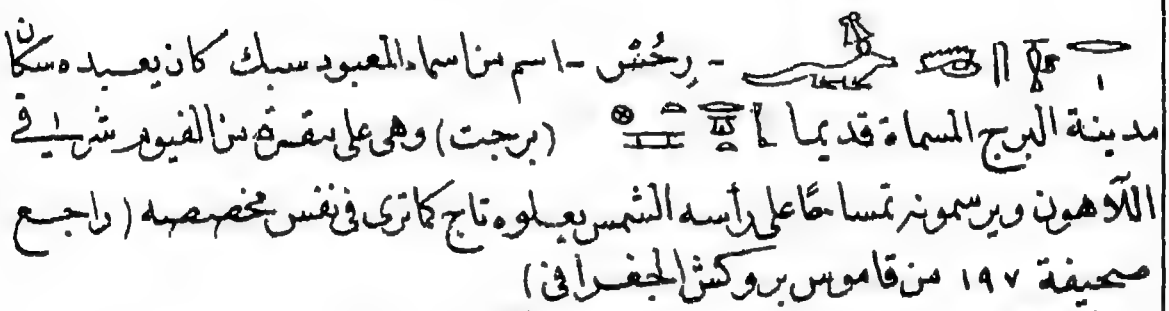 - رِخُنْسْ - اسم من اسماء المعبود سبك كان يعبده سكان
مدينة البرج المسماة قديما (برجت) وهى على مقربة من الفيوم شرقى
اللاهون ويرسمونه تمساحًا على رأسه الشمس يعلوه تاج كما ترى فى نفس مخصصه (راجع
صحيفة ١٩٧ من قاموس بروكش الجغرافى)